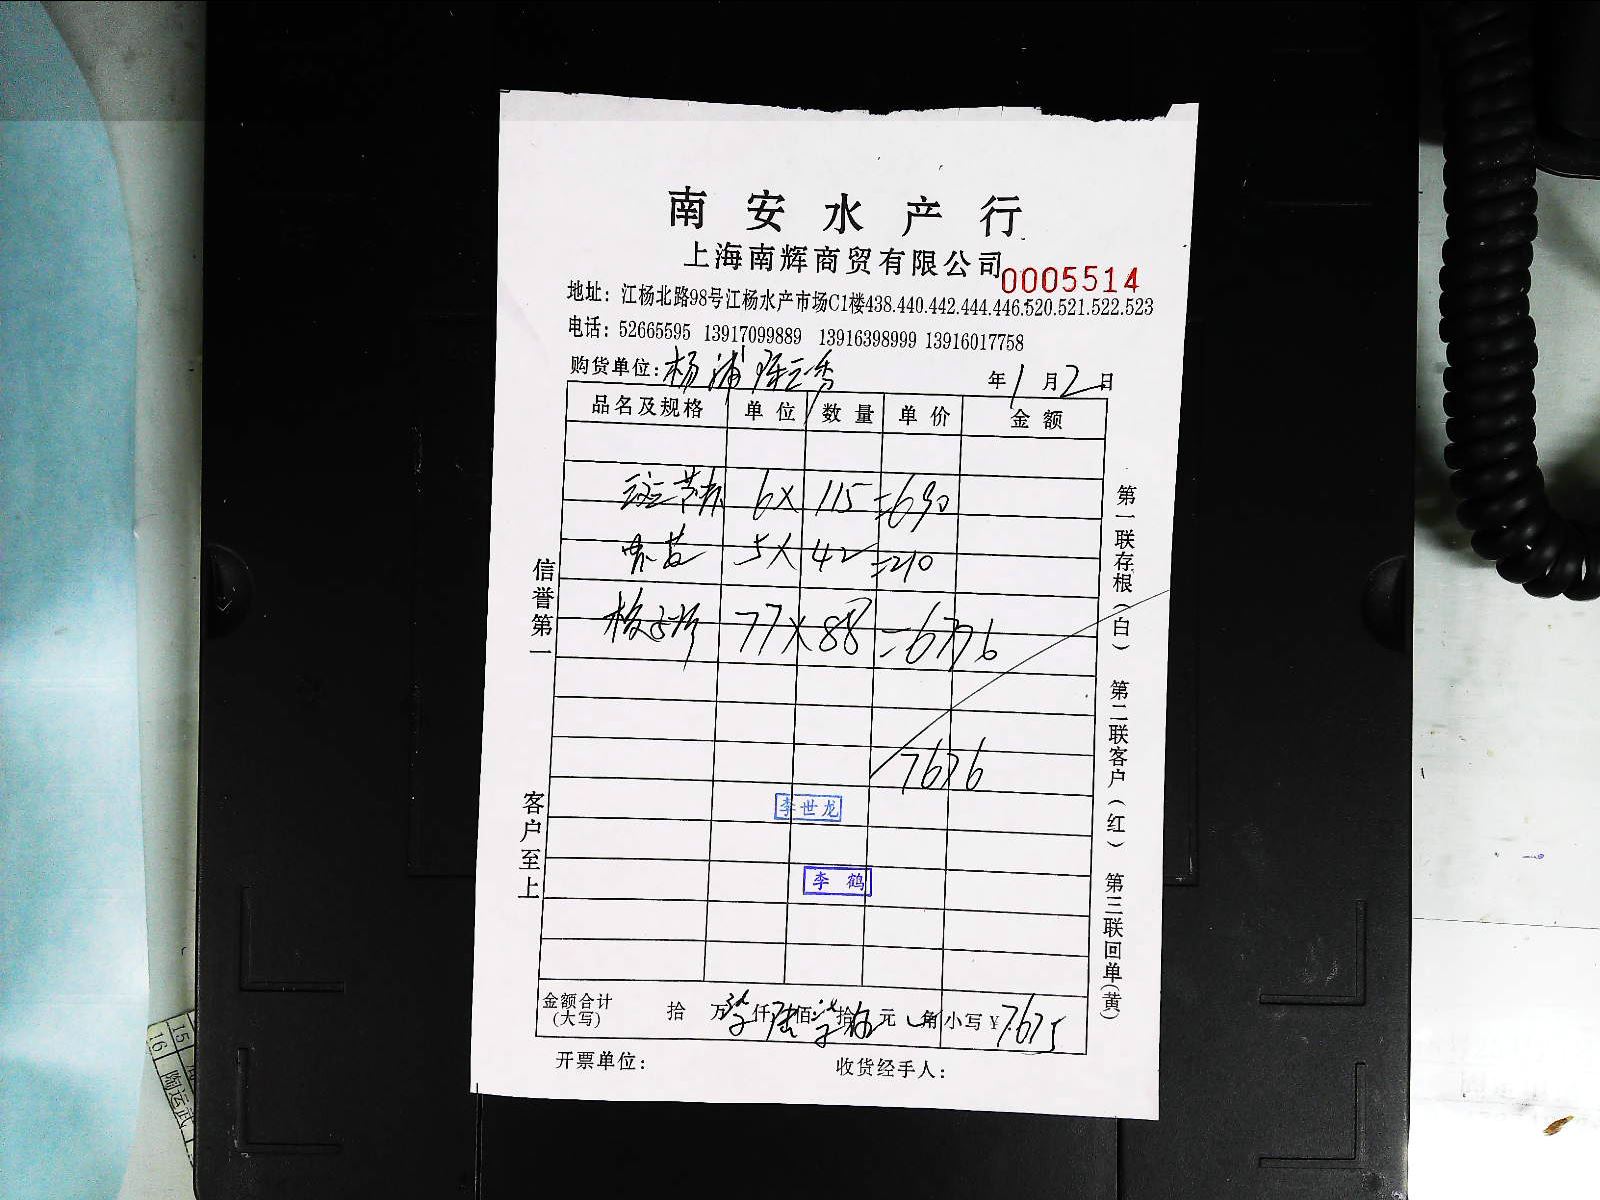 南安水产行
上海南辉商贸有限公司
0005514
地址：江杨北路98号江杨水产市场C1楼438.440.442.444.446.520.521.522.523
电话：52665595 13917099889 13916398999 13916017758
购货单位：杨浦 陈云秀
年1月2日
品名及规格 单位 数量 单价 金额
斑节 6X 115 =690
5X 42 =210
77X 88 =6776
7676
李世龙
李鹤
金额合计
(大写)
拾 万柒仟陆佰柒拾 元 角 小写¥7675
开票单位：
收货经手人：
信誉第一
客户至上
第一联存根(白) 第二联客户(红) 第三联回单(黄)
15
16
陶运武